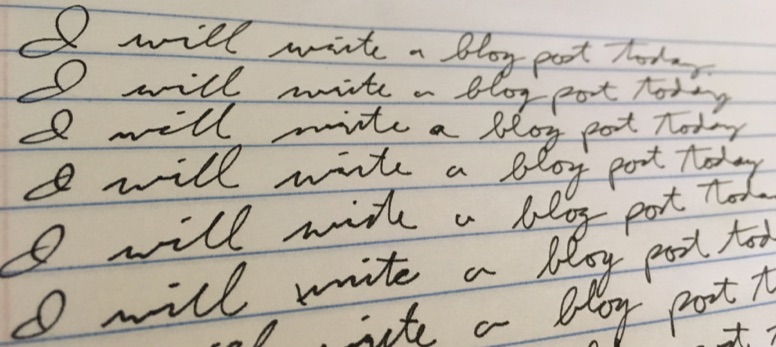 I will write a blog post today.
I will write a blog post today
I will write a blog post today
I will write a blog post today
I will write a blog post toda
I will write a blog post tod
I will write a blog post t
write a blog post